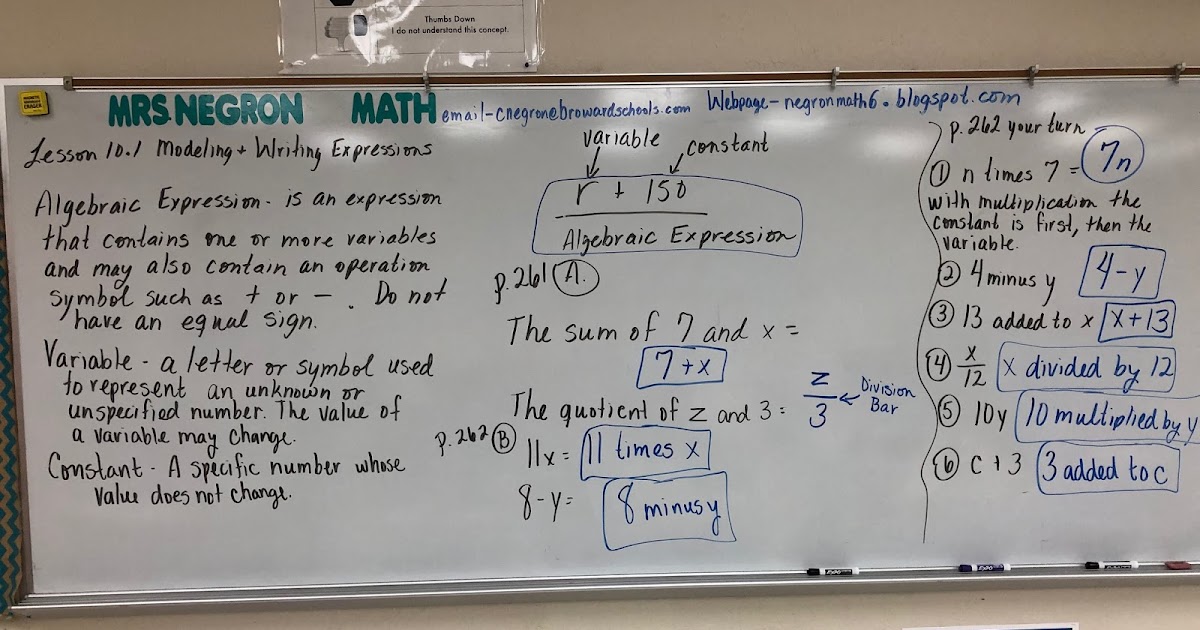 Thumbs Down
I do not understand this concept.
MRS. NEGRON MATH email-cnegron@browardschools.com Webpage- negronmath6.blogspot.com
Lesson 10.1 Modeling + Writing Expressions
Algebraic Expression- is an expression
that contains one or more variables
and may also contain an operation
symbol such as + or - . Do not
have an equal sign.
Variable - a letter or symbol used
to represent an unknown or
unspecified number. The value of
a variable may change.
Constant - A specific number whose
value does not change.
variable constant
r + 150
Algebraic Expression
p.261 A.
The sum of 7 and x =
7+x
The quotient of z and 3 = z/3 ← Division
Bar
p.262 B 11x = 11 times x
8-y= 8 minus y
p.262 your turn
① n times 7 = 7n
with multiplication the
constant is first, then the
variable.
② 4 minus y 4-y
③ 13 added to x x+13
④ x/12 x divided by 12
⑤ 10y 10 multiplied by y
⑥ c+3 3 added to c
EXPO
EXPO